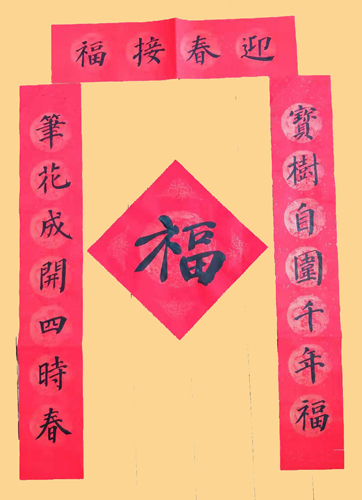 迎春接福
寶樹自圍千年福
筆花成開四時春
福